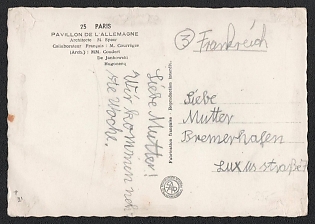 25 PARIS
PAVILLON DE L'ALLEMAGNE
Architecte M. Speer
Collaborateur Français : M. Courrigex
(Arch.) : MM. Gondert
De Jankowski
Hugonenq
Liebe Mutter!
Wir kommen
Woche.
Fabrication française - Reproduction interdite.
③ Frankreich
Liebe
Mutter
Bremerhafen
Luxusstraße